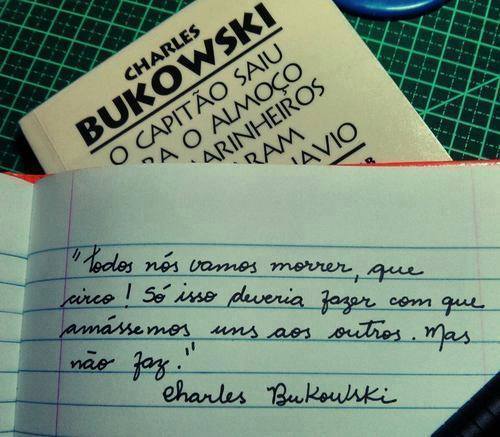 CHARLES
BUKOWSKI
O CAPITÃO SAIU
O ALMOÇO
NAVIO
"todos nós vamos morrer, que
circo! Só isso deveria fazer com que
amássemos uns aos outros. Mas
não faz."
Charles Bukowski